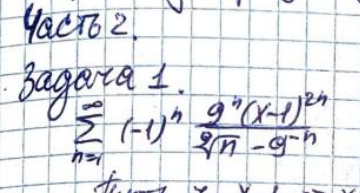 Часть 2.
Задача 1.
∞
∑ (-1)ⁿ 9ⁿ(x-1)²ⁿ / ⁹√n - 9⁻ⁿ
n=1